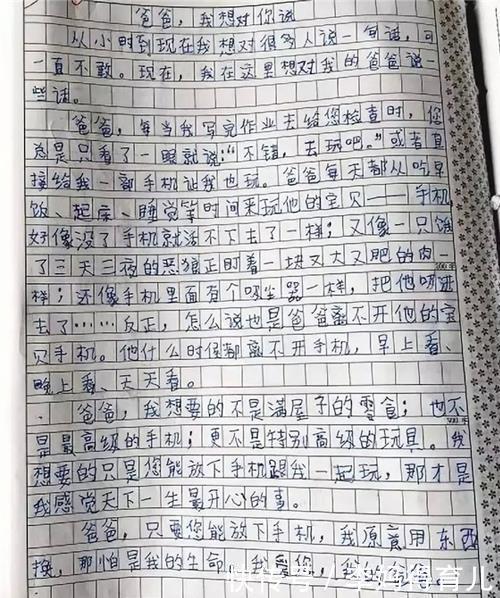 爸爸，我想对你说
从小时到现在我想对很多人说一句话，可
一直不敢。现在，我在这里想对我的爸爸说一
些话。
爸爸，每当我写完作业去给您检查时，您
总是只看了一眼就说："不错，去玩吧。"或者直
接给我一部手机让我也玩。爸爸每天都从吃早
饭、起床、睡觉等时间来玩他的宝贝——手机
好像没了手机就活不下去了一样；又像一只饿
了三天三夜的恶狼正盯着一块又大又肥的肉一
样；还像手机里面有个吸尘器一样，把他吸进
去了……反正，怎么说也是爸爸离不开他的宝
贝手机。他什么时候都离不开手机，早上看、
晚上看、天天看。
爸爸，我想要的不是满屋子的零食；也不
是最高级的手机；更不是特别高级的玩具。我
想要的只是您能放下手机跟我一起玩，那才是
我感觉天下一生最开心的事。
爸爸，只要您能放下手机，我原意用东西
换，那怕是我的生命，我爱您，我的爸爸
300字
快传号/李妈得育儿